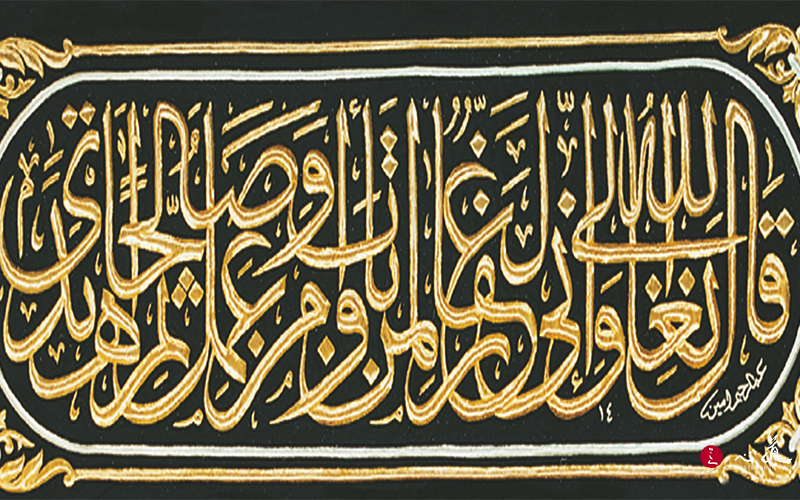 قال الله تعالى وإني لغفار لمن تاب وآمن وعمل صالحا ثم اهتدى
١٤
عبدالرحيم امين